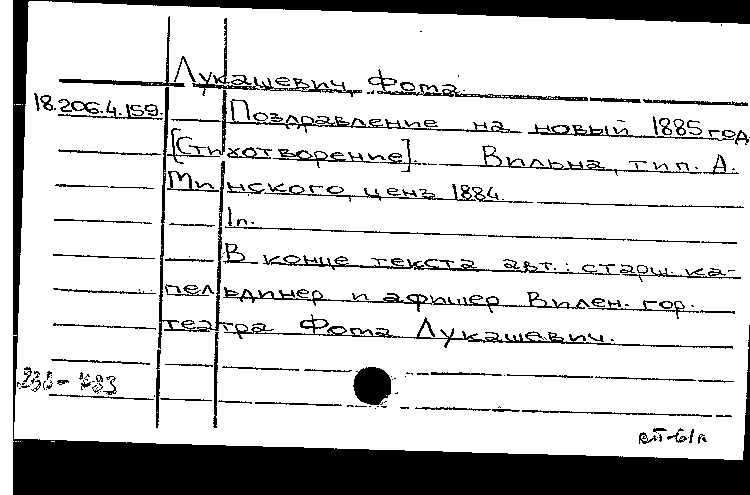 Лукашевич, Фота.
18.206.4.159. Поздравление на новый 1885 год
[Стихотворение]. Вильна, тип. А.
Минского, ценз. 1884.
1л.
В конце текста авт.: старш. ка-
пельдинер и афишер Вилен. гор.
театра Фота Лукашевич.